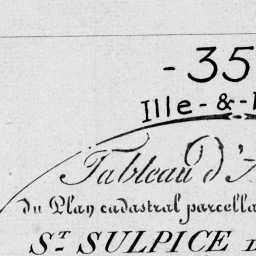 - 35
Ille-&-
Tableau d'
du Plan cadastral parcella
ST SULPICE